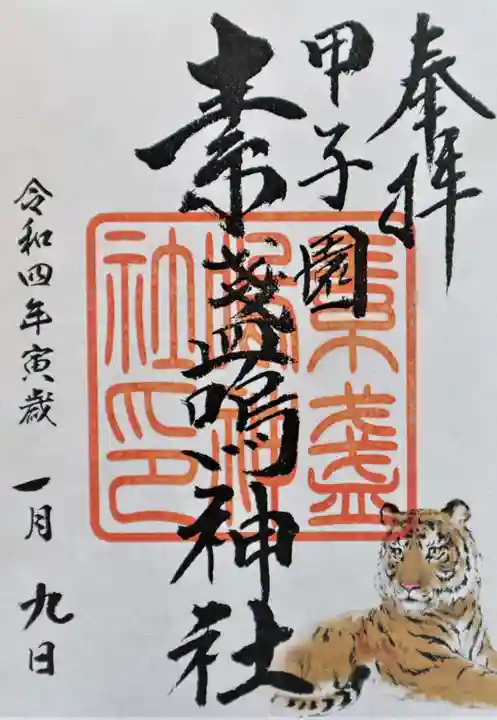 奉拝
甲子園
素盞嗚神社
素盞
嗚神
社印
令和四年寅歳 一月 九日